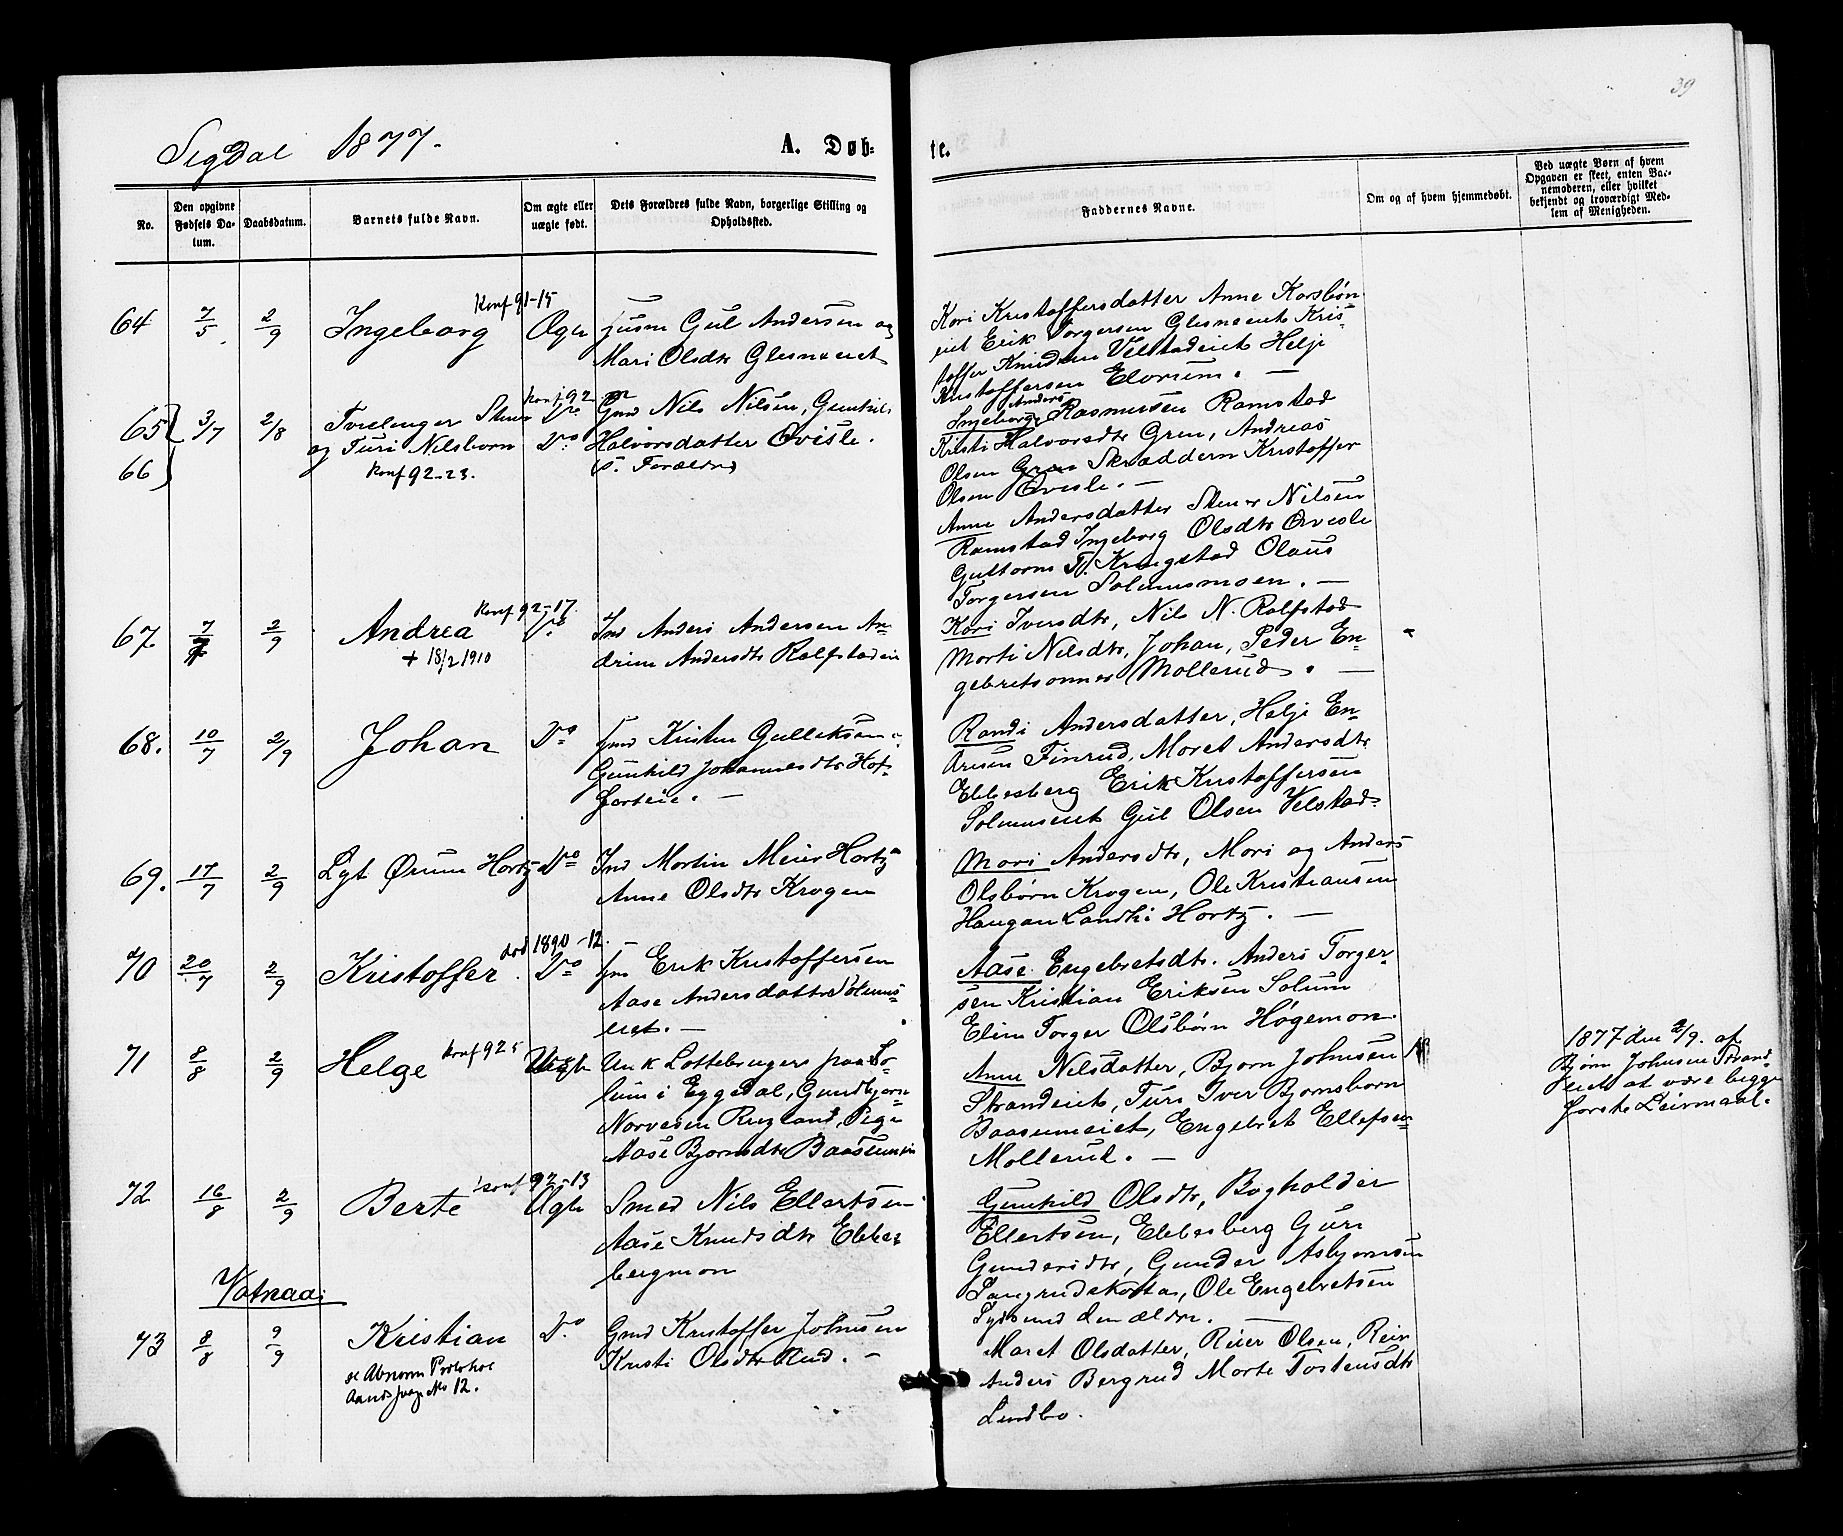 39
Segdal 1877.
A. Døb-
te.
No.
Den opgivne Fødsels Da-
tum.
Daabsdatum.
Barnets fulde Navn.
Om ægte eller
uægte født.
Dets Forældres fulde Navn, borgerlige Stilling og
Opholdssted.
Faddernes Navne.
Om og af hvem hjemmedøbt.
Ved uægte Børn af hvem
Opgaven er skeet, enten Bar-
nemoderen, eller hvilket
bekjendt og troværdigt Med-
lem af Menigheden.
64 7/5 2/9 Ingeborg Konf 91-15 Ægte
Gul Andersen og
Mari Olsdtr Glesneeiet
Kari Kristoffersdatter Anne Korsbøn
eiet Erik Torgersen Glesneeiet Kris-
toffer Knudsen Velstadeiet Helje
Kristoffersen Elorum. —
65 66 3/7 2/8 Tvelinger Stener
og Turi Nilsbørn
Konf 92-23.
Konf 92
Do
Do
Gmd Nils Nilsen, Gunhild
Halvorsdatter Kvisle.
s. Forældre
Anders
Ingeborg Rasmussen Ramstad
Kristi Halvorsdtr Gren, Andreas
Olsen Gren Skrædderen Kristoffer
Olsen Kvisle. —
Anne Andersdatter Stener Nilsen
Ramstad Ingeborg Olsdtr Kvisle
Guttorm T. Kringstad Olaus
Torgersen Solumsmoen. —
67. 7/7 2/9 Andrea Konf 92-17. Do
+ 18/2 1910
Ind Anders Andersen An-
drine Andersdtr Ralfstadeie
Kari Iversdtr, Nils N. Ralfstad
Marti Nilsdtr, Johan, Peder En-
gebretsønner Mollerud. —
68. 10/7 2/9 Johan Do
Kristen Gulleksen
Gunhild Johannesdtr Hof-
Randi Andersdatter, Helje En-
dresen Finrud, Maret Andersdtr
Ebbesberg Erik Kristoffersen
Solumseiet Gul Olsen Velstad
69. 17/7 2/9 Lyt Ørum Hortz Do
Ind Martin Meier Hortz
Anne Olsdtr Krogen
Mari Andersdtr, Mari og Anders
Olsbørn Krogen, Ole Kristiansen
Haugan Hortz. —
70 20/7 2/9 Kristoffer død 1890-12. Do
Erik Kristoffersen
Aase Andersdatter Solums-
eiet. —
Aase Engebretsdtr. Anders Torger-
sen Kristian Eriksen Solum
Elin Torger Olsbørn Høgemon.
71 8/8 2/9 Helge Konf 92 5 Uægte
Unk Løttebruger paa So-
lum i Eggedal, Gundbjørn
Norvesen Rugland, Pige
Aase Bjørnsdtr Baaseumeie
Anne Nilsdatter, Bjørn Johnsen
Strandeiet, Turi Iver Bjørnsbørn
Baaseumeiet, Engebret Ellefsen
Mollerud. —
1877 den 2/9. af
Bjørn Johnsen Strand-
eiet at være begges
første Leirmaal.
72 16/8 2/9 Berte Konf 92-13 Ægte
Smed Nils Ellertsen
Aase Knudsdtr Ebbes-
bergmon
Gunhild Olsdtr, Bogholder
Ellertsen, Ebbesberg Guri
Gundersdtr, Gunder Asbjørnsen
Langrudskorta, Ole Engebretsen
den ældre.
Vatnaas
73 8/8 9/9 Kristian Do
se Abnorm Protokol
Aandssvage No 12.
Gmd Kristoffer Johnsen
Kristi Olsdtr Rud. —
Maret Olsdatter, Reier Olsen, Reier
Anders Bergrud Marte Tostensdtr
Lindbo.